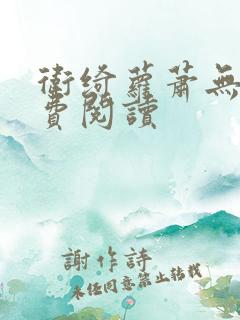 衛綺蘿蕭無
費閱讀
謝作詩
未经同意禁止转载